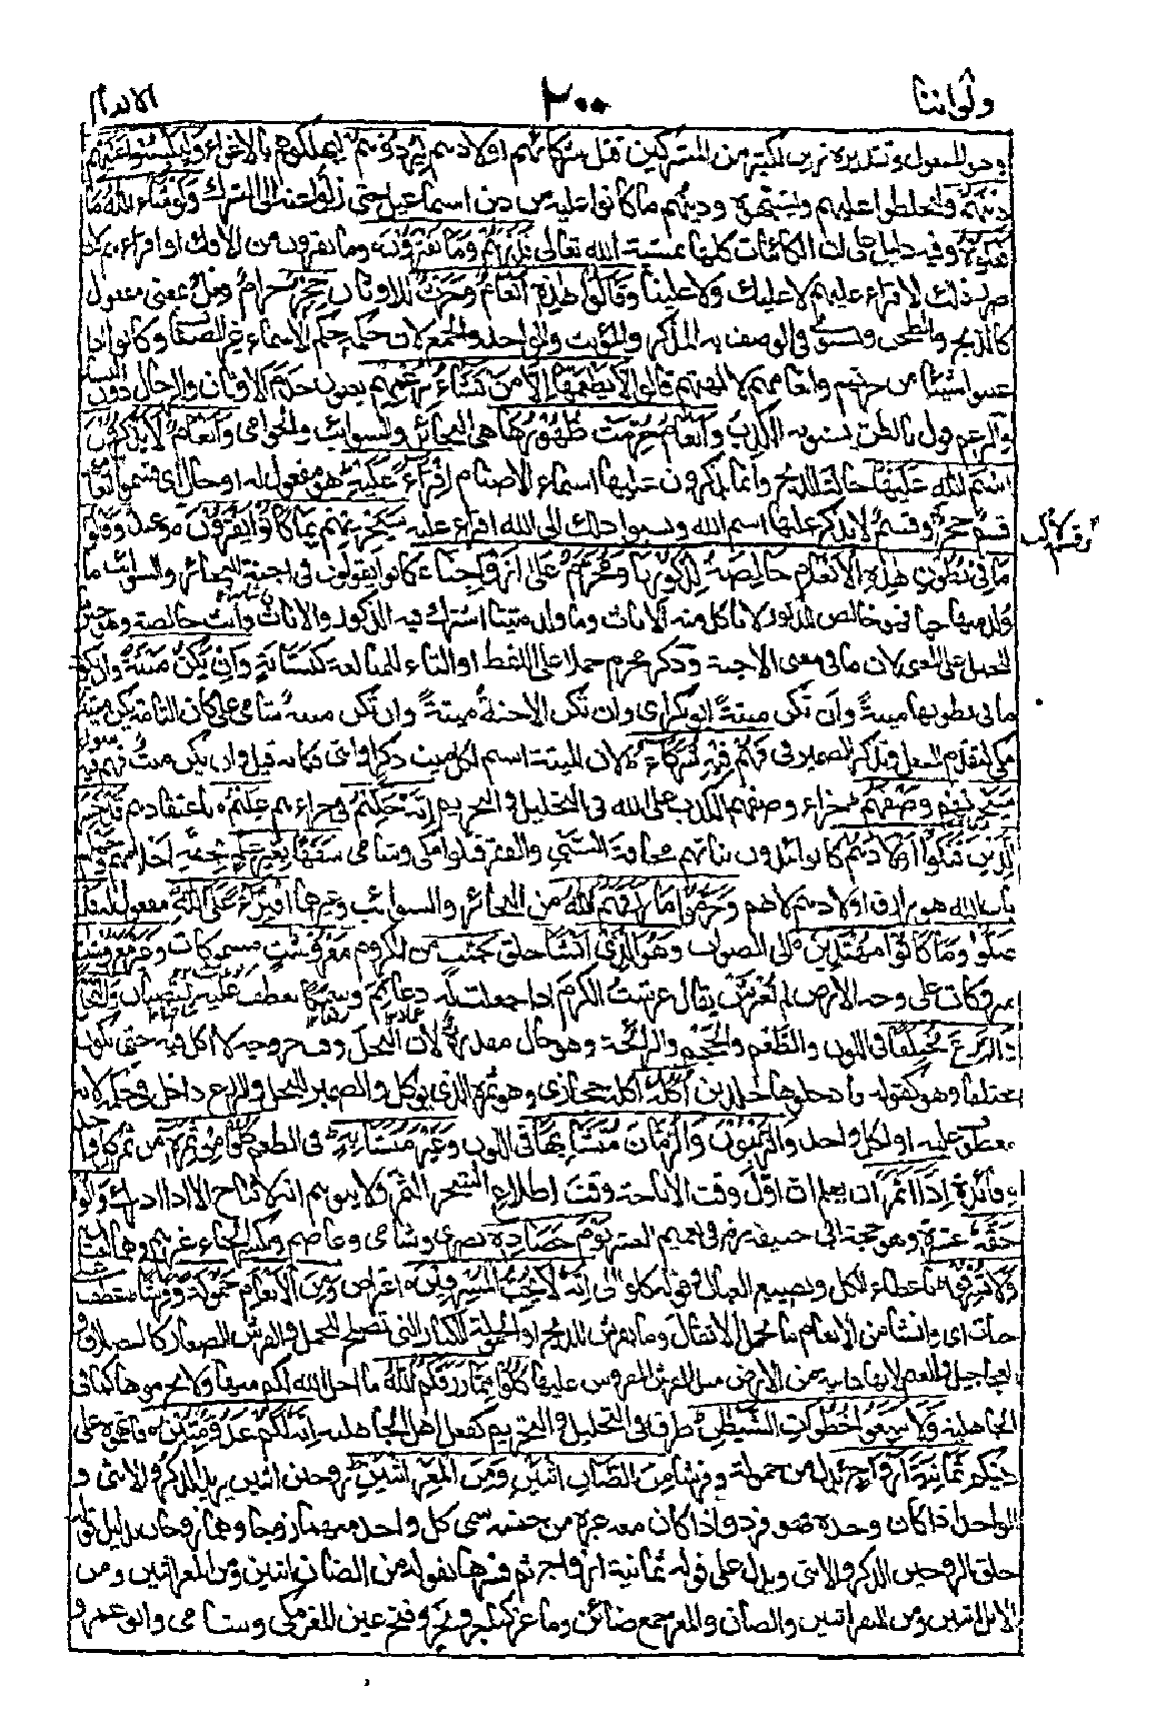 ولواننا ٢٠٠ الانعام
وجه المفعول وتقديره زين لكثير من المشركين قتل شركائهم اولادهم لِيُرْدُوهُمْ ليهلكوهم بالاغواء وَلِيَلْبِسُوا عَلَيْهِمْ
دِينَهُمْ وليخلطوا عليهم ويشبهوه ودينهم ما كانوا عليه من دين اسماعيل حتى زلوا عنه الى الشرك وَلَوْ شَاءَ اللهُ مَا
فَعَلُوهُ وفيه دليل على ان الكائنات كلها بمشية الله تعالى فَذَرْهُمْ وَمَا يَفْتَرُونَ وما يفترونه من الافك او افتراءهم لان
ضرر ذلك الافتراء عليهم لا عليك ولا علينا وَقَالُوا هٰذِهِ اَنْعَامٌ وَحَرْثٌ للاوثان حِجْرٌ حرام فعل بمعنى مفعول
كالذبح والطحن ويستوي في الوصف به المذكر والمؤنث والواحد والجمع لان حكمه حكم الاسماء غير الصفات وكانوا اذا
عينوا شيئا من حرثهم وانعامهم لالهتهم قالوا لَا يَطْعَمُهَا اِلَّا مَنْ نَشَاءُ بِزَعْمِهِمْ يعنون خدم الاوثان والرجال دون النساء
والزعم قول بالظن يشوبه الكذب وَاَنْعَامٌ حُرِّمَتْ ظُهُورُهَا هي البحائر والسوائب والحوامي وَاَنْعَامٌ لَا يَذْكُرُونَ
اسْمَ اللهِ عَلَيْهَا حالة الذبح وانما يذكرون عليها اسماء الاصنام افْتِرَاءً عَلَيْهِ هو مفعول له او حال اي قسموا انعامهم
قسم حجر وقسم لا يذكر عليها اسم الله ونسبوا ذلك الى الله افتراء عليه سَيَجْزِيهِمْ بِمَا كَانُوا يَفْتَرُونَ وعيد وَقَالُوا
مَا فِي بُطُونِ هٰذِهِ الْاَنْعَامِ خَالِصَةٌ لِذُكُورِنَا وَمُحَرَّمٌ عَلٰى اَزْوَاجِنَا كانوا يقولون في اجنة البحائر والسوائب ما
ولد منها حيا فهو خالص للذكور لا تاكل منه الاناث وما ولد ميتا اشترك فيه الذكور والاناث وانث خالصة وهو خبر ما
للحمل على المعنى لان ما في معنى الاجنة وذكر محرم حملا على اللفظ او التاء للمبالغة كنسابة وَاِنْ يَكُنْ مَيْتَةً وان يكن
ما في بطونها ميتة وان تكن ميتة ابو بكر اي وان تكن الاجنة ميتة وان تكن ميتة شامي على كان التامة يكن ميتة
مكي لتقدم الفعل وتذكير الضمير في فَهُمْ فِيهِ شُرَكَاءُ لان الميتة اسم لكل ميت ذكرا وانثى فكانه قيل وان يكن ميت فهم فيه
سَيَجْزِيهِمْ وَصْفَهُمْ جزاء وصفهم الكذب على الله في التحليل والتحريم اِنَّهُ حَكِيمٌ في جزاءهم عَلِيمٌ باعتقادهم قَدْ خَسِرَ
الَّذِينَ قَتَلُوا اَوْلَادَهُمْ كانوا يئدون بناتهم مخافة السبي والفقر قتلوا مكي وشامي سَفَهًا بِغَيْرِ عِلْمٍ لخفة احلامهم وجهلهم
بان الله هو رازق اولادهم لا هم وَحَرَّمُوا مَا رَزَقَهُمُ اللهُ من البحائر والسوائب وغيرها افْتِرَاءً عَلَى اللهِ مفعول له قَدْ
ضَلُّوا وَمَا كَانُوا مُهْتَدِينَ الى الصواب وَهُوَ الَّذِي اَنْشَاَ خلق جَنّٰتٍ من الكروم مَعْرُوشٰتٍ مسموكات وَغَيْرَ مَعْرُوشٰتٍ
متروكات على وجه الارض لم تعرش يقال عرشت الكرم اذا جعلت له دعائم وسمكا تعطف عليه القضبان وَالنَّخْلَ
وَالزَّرْعَ مُخْتَلِفًا في اللون والطعم والحجم والرائحة وهو حال مقدرة لان النخل وقت خروجه لا اكل فيه حتى يكون
مختلفا وهو كقوله فادخلوها خالدين اُكُلُهُ اكله حجازي وهو ثمره الذي يؤكل والضمير للنخل والزرع داخل في حكمه لانه
معطوف عليه او لكل واحد وَالزَّيْتُونَ وَالرُّمَّانَ مُتَشَابِهًا في اللون وَغَيْرَ مُتَشَابِهٍ في الطعم كُلُوا مِنْ ثَمَرِهِ من ثمر كل واحد
وفائدة اِذَا اَثْمَرَ ان يعلم ان اول وقت الاباحة وقت اطلاع الشجر الثمر ولا يتوهم انه لا يباح الا اذا ادرك وَاٰتُوا
حَقَّهُ عشره وهو حجة ابي حنيفة رح في تعميم العشر يَوْمَ حَصَادِهِ بصري وشامي وعاصم وبكسر الحاء غيرهم وهما لغتان
وَلَا تُسْرِفُوا باعطاء الكل وتضييع العيال وقوله كلوا الى اِنَّهُ لَا يُحِبُّ الْمُسْرِفِينَ اعتراض وَمِنَ الْاَنْعَامِ حَمُولَةً وَفَرْشًا عطف على
جنات اي وانشا من الانعام ما يحمل الاثقال وما يفرش للذبح او الحمولة الكبار التي تصلح للحمل والفرش الصغار كالفصلان و
العجاجيل والغنم لانها دانية من الارض مثل الفرش المفروش عليها كُلُوا مِمَّا رَزَقَكُمُ اللهُ ما احل الله لكم منها ولا تحرموها كما في
الجاهلية وَلَا تَتَّبِعُوا خُطُوٰتِ الشَّيْطٰنِ طرقه في التحليل والتحريم كفعل اهل الجاهلية اِنَّهُ لَكُمْ عَدُوٌّ مُبِينٌ فاتهموه على
دينكم ثَمَانِيَةَ اَزْوَاجٍ بدل من حمولة وفرشا مِنَ الضَّاْنِ اثْنَيْنِ وَمِنَ الْمَعْزِ اثْنَيْنِ زوجين اثنين يريد الذكر والانثى و
الواحد اذا كان وحده فهو فرد واذا كان معه غيره من جنسه سمي كل واحد منهما زوجا وهما زوجان بدليل قوله
خلق الزوجين الذكر والانثى ويدل على قوله ثمانية ازواج ثم فسرها بقوله من الضان اثنين ومن المعز اثنين ومن
الابل اثنين ومن البقر اثنين والضان والمعز جمع ضائن وماعز كتاجر وتجر وفتح عين المعز مكي وشامي وابو عمرو و